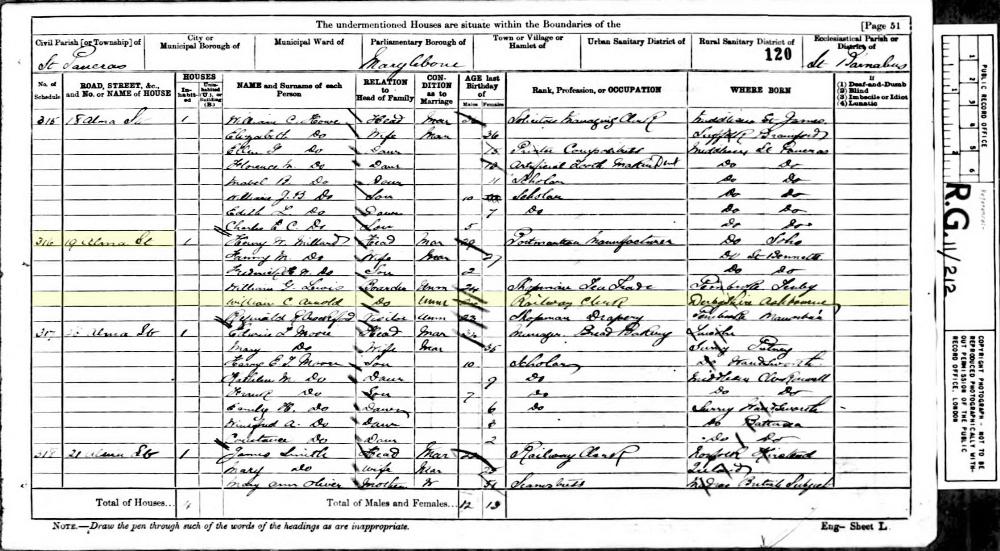 The undermentioned Houses are situate within the Boundaries of the
[Page 51
Civil Parish [or Township] of
City or Municipal Borough of
Municipal Ward of
Parliamentary Borough of
Town or Village or Hamlet of
Urban Sanitary District of
Rural Sanitary District of
Ecclesiastical Parish or District of
St Pancras
Marylebone
120
St Barnabas
No. of Schedule
ROAD, STREET, &c., and No. or NAME of HOUSE
HOUSES
Inhabited
Uninhabited (U.), or Building (B.)
NAME and Surname of each Person
RELATION to Head of Family
CONDITION as to Marriage
AGE last Birthday of
Males
Females
Rank, Profession, or OCCUPATION
WHERE BORN
If
(1) Deaf-and-Dumb
(2) Blind
(3) Imbecile or Idiot
(4) Lunatic
315 18 Alma St 1 William C. Howe Head Mar Solicitors Managing Clerk Middlesex St James
Elizabeth Do Wife Mar 36 Suffolk Bramford
Ellen Do Daur Middlesex St Pancras
Florence M. Do Daur Artificial Tooth Maker Do Do
Mabel Do Daur 11 Scholar Do Do
William J. B Do Son 10 Scholar Do Do
Edith L. Do Daur 7 Do Do Do
Charles E C Do Son 5 Do Do
316 19 Alma St 1 Henry Millard Head Mar Portmanteau Manufacturer Do Soho
Fanny M. Do Wife Mar 27 Do St
Frederick Do Son 2 Do Do
William G Lewis Boarder Unm 24 Shopman Tea Trade Pembroke Tenby
William C Arnold Do Unm Railway Clerk Derbyshire Ashbourne
Reginald Visitor Unm 22 Shopman Drapery Pembroke
317 Alma St 1 Moore Head Mar Manager Bread Baking
Mary Do Wife Mar 35 Surrey Putney
Moore Son 10 Scholar Do Wandsworth
Kathleen M. Do Daur 9 Do Middlesex Clerkenwell
Frank Do Son 7 Do
Emily Do Daur 6 Do Surrey Wandsworth
Winifred A. Do Daur Do Battersea
Constance Do Daur 2 Do Do
318 21 Alma St 1 James Smith Head Mar Railway Clerk Norfolk
Mary Do Wife Mar Ireland
Mary Ann Oliver Mother W 51 British Subject
Total of Houses... 4
Total of Males and Females... 12 13
NOTE.—Draw the pen through such of the words of the headings as are inappropriate.
Eng— Sheet L.
PUBLIC RECORD OFFICE
1
2
3
4
5
6
Reference:-
R.G. 11/212
COPYRIGHT PHOTOGRAPH - NOT TO BE REPRODUCED PHOTOGRAPHICALLY WITHOUT PERMISSION OF THE PUBLIC RECORD OFFICE, LONDON